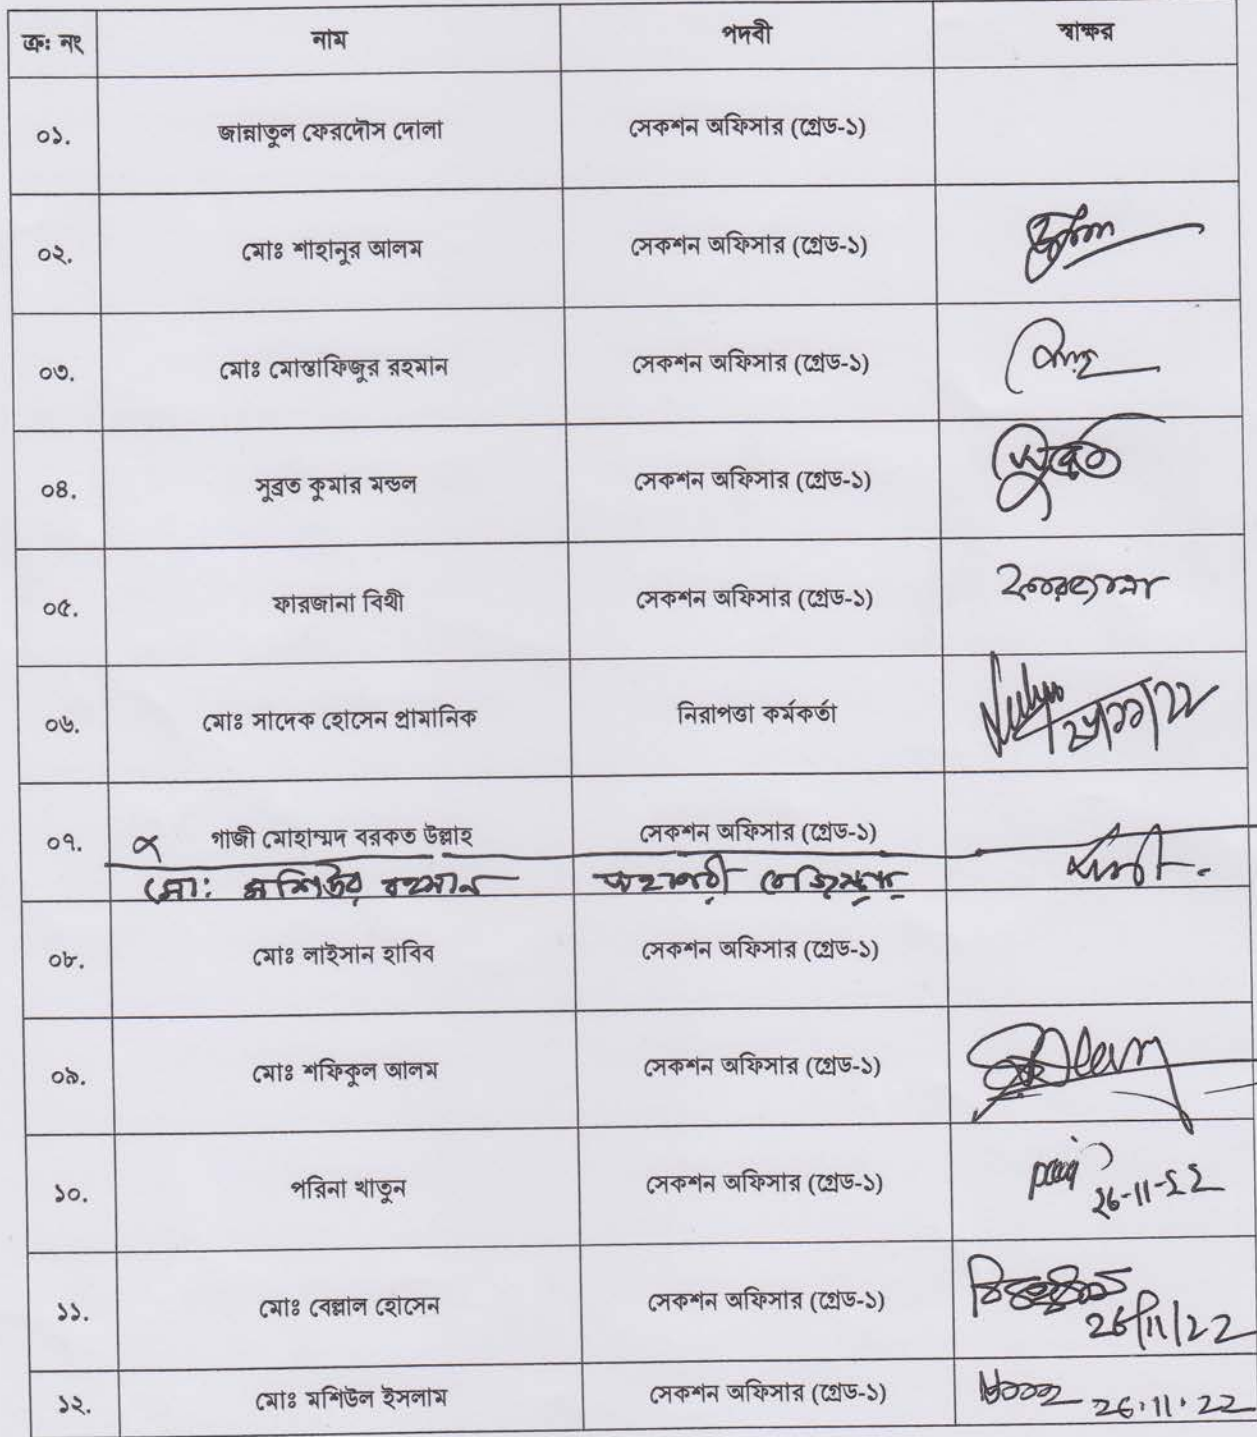 ক্রঃ নং নাম পদবী স্বাক্ষর
০১. জান্নাতুল ফেরদৌস দোলা সেকশন অফিসার (গ্রেড-১)
০২. মোঃ শাহানুর আলম সেকশন অফিসার (গ্রেড-১)
০৩. মোঃ মোস্তাফিজুর রহমান সেকশন অফিসার (গ্রেড-১)
০৪. সুব্রত কুমার মন্ডল সেকশন অফিসার (গ্রেড-১) সুব্রত
০৫. ফারজানা বিথী সেকশন অফিসার (গ্রেড-১) ফারজানা
০৬. মোঃ সাদেক হোসেন প্রামানিক নিরাপত্তা কর্মকর্তা
০৭. গাজী মোহাম্মদ বরকত উল্লাহ সেকশন অফিসার (গ্রেড-১)
মো: মশিউর রহমান সহকারী রেজিস্ট্রার
০৮. মোঃ লাইসান হাবিব সেকশন অফিসার (গ্রেড-১)
০৯. মোঃ শফিকুল আলম সেকশন অফিসার (গ্রেড-১)
১০. পরিনা খাতুন সেকশন অফিসার (গ্রেড-১) 26-11-22
১১. মোঃ বেল্লাল হোসেন সেকশন অফিসার (গ্রেড-১) 26/11/22
১২. মোঃ মশিউল ইসলাম সেকশন অফিসার (গ্রেড-১) 26.11.22